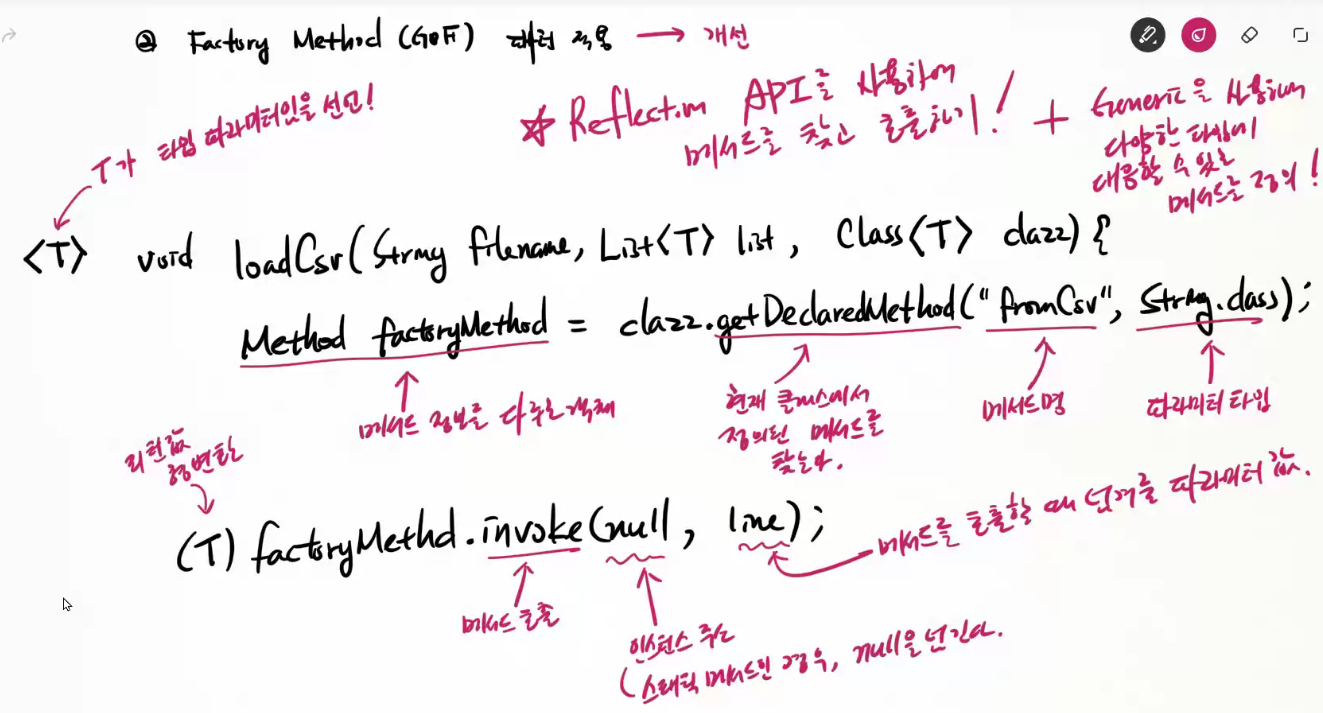 ② Factory Method (GoF) 패턴 적용 → 개선
☆ Reflection API를 사용하여
메서드를 찾고 호출하기! + Generic을 사용하여
다양한 타입에
대응할 수 있는
메서드를 정의!
T가 타입 파라미터임을 선언!
<T> void loadCsv(String filename, List<T> list, Class<T> clazz) {
Method factoryMethod = clazz.getDeclaredMethod("fromCsv", String.class);
메서드 정보를 다루는 객체
현재 클래스에서
정의된 메서드를
찾는다.
메서드명
파라미터 타입
리턴값
형변환
(T) factoryMethd.invoke(null, line);
메서드를 호출할 때 넘겨줄 파라미터 값.
메서드 호출
인스턴스 주소
(스태틱 메서드인 경우, null을 넘긴다.